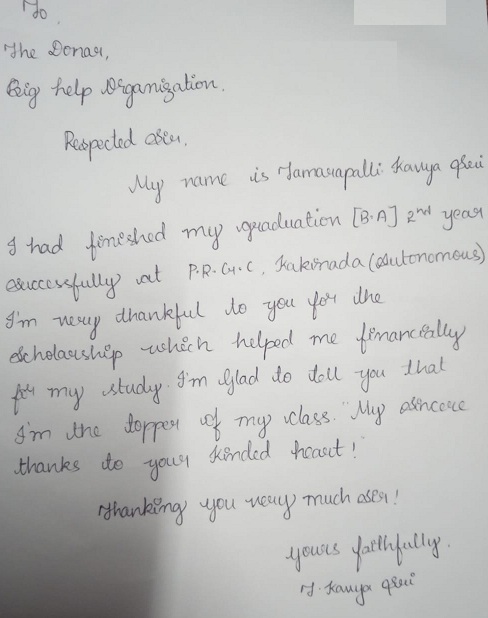 To,
The Donar,
Big help Organization.
Respected sir,
My name is Tamarapalli Kavya Sri
I had finished my graduation [B.A] 2nd year
successfully at P.R.G.C, Kakinada (Autonomous)
I'm very thankful to you for the
Scholarship which helped me financially
for my study. I'm Glad to tell you that
I'm the topper of my class. My sincere
thanks to your kinded heart!
Thanking you very much sir!
yours faithfully.
T. Kavya Sri